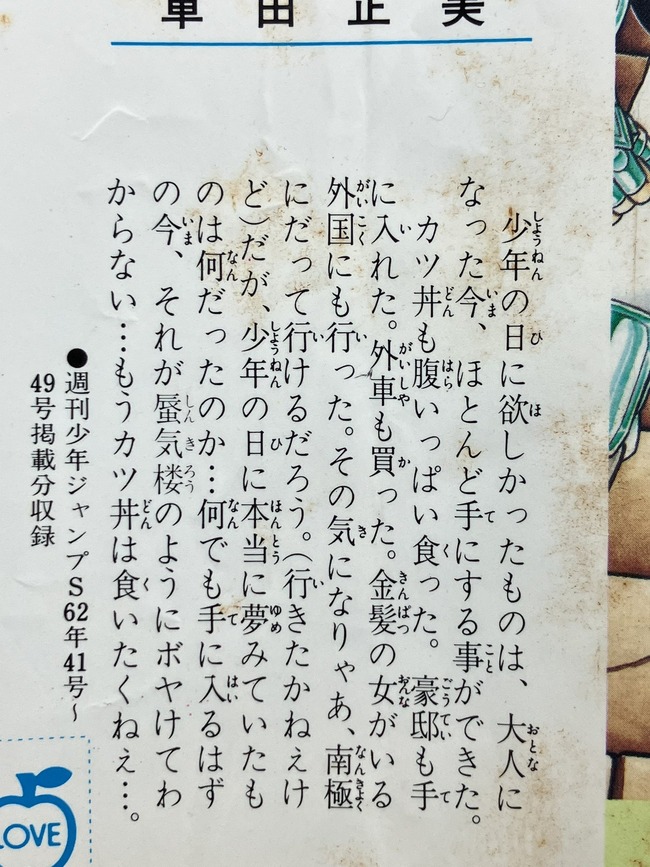 車田正美
少年の日に欲しかったものは、大人に
なった今、ほとんど手にする事ができた。
カツ丼も腹いっぱい食った。豪邸も手
に入れた。外車も買った。金髪の女がいる
外国にも行った。その気になりゃあ、南極
にだって行けるだろう。(行きたかねえけ
ど)だが、少年の日に本当に夢みていたも
のは何だったのか…何でも手に入るはず
の今、それが蜃気楼のようにボヤけてわ
からない…もうカツ丼は食いたくねぇ…。
●週刊少年ジャンプS62年41号~
49号掲載分収録
LOVE